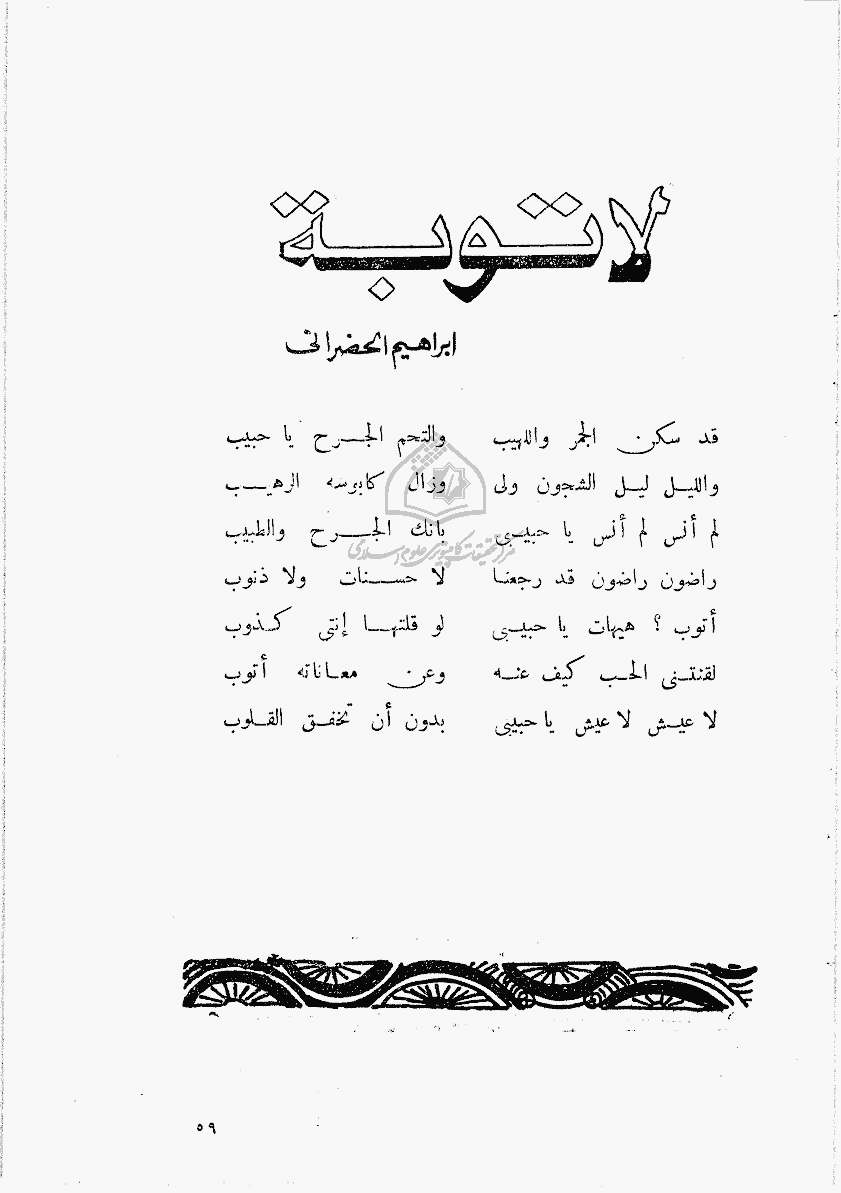 لا توبة
ابراهيم الحضراني
قد سكن الجمر واللهيب والتحم الجرح يا حبيب
والليل ليل الشجون ولى وزال كابوسه الرهيب
لم أنس لم أنس يا حبيبي بانك الجرح والطبيب
راضون راضون قد رجعنا لا حسنات ولا ذنوب
أتوب ؟ هيهات يا حبيبي لو قلتها إنني كذوب
لقنتني الحب كيف عنه وعن معاناته أتوب
لا عيش لا عيش يا حبيبي بدون أن تخفق القلوب
مرکز تحقیقات کامپیوتری علوم اسلامی
٥٩